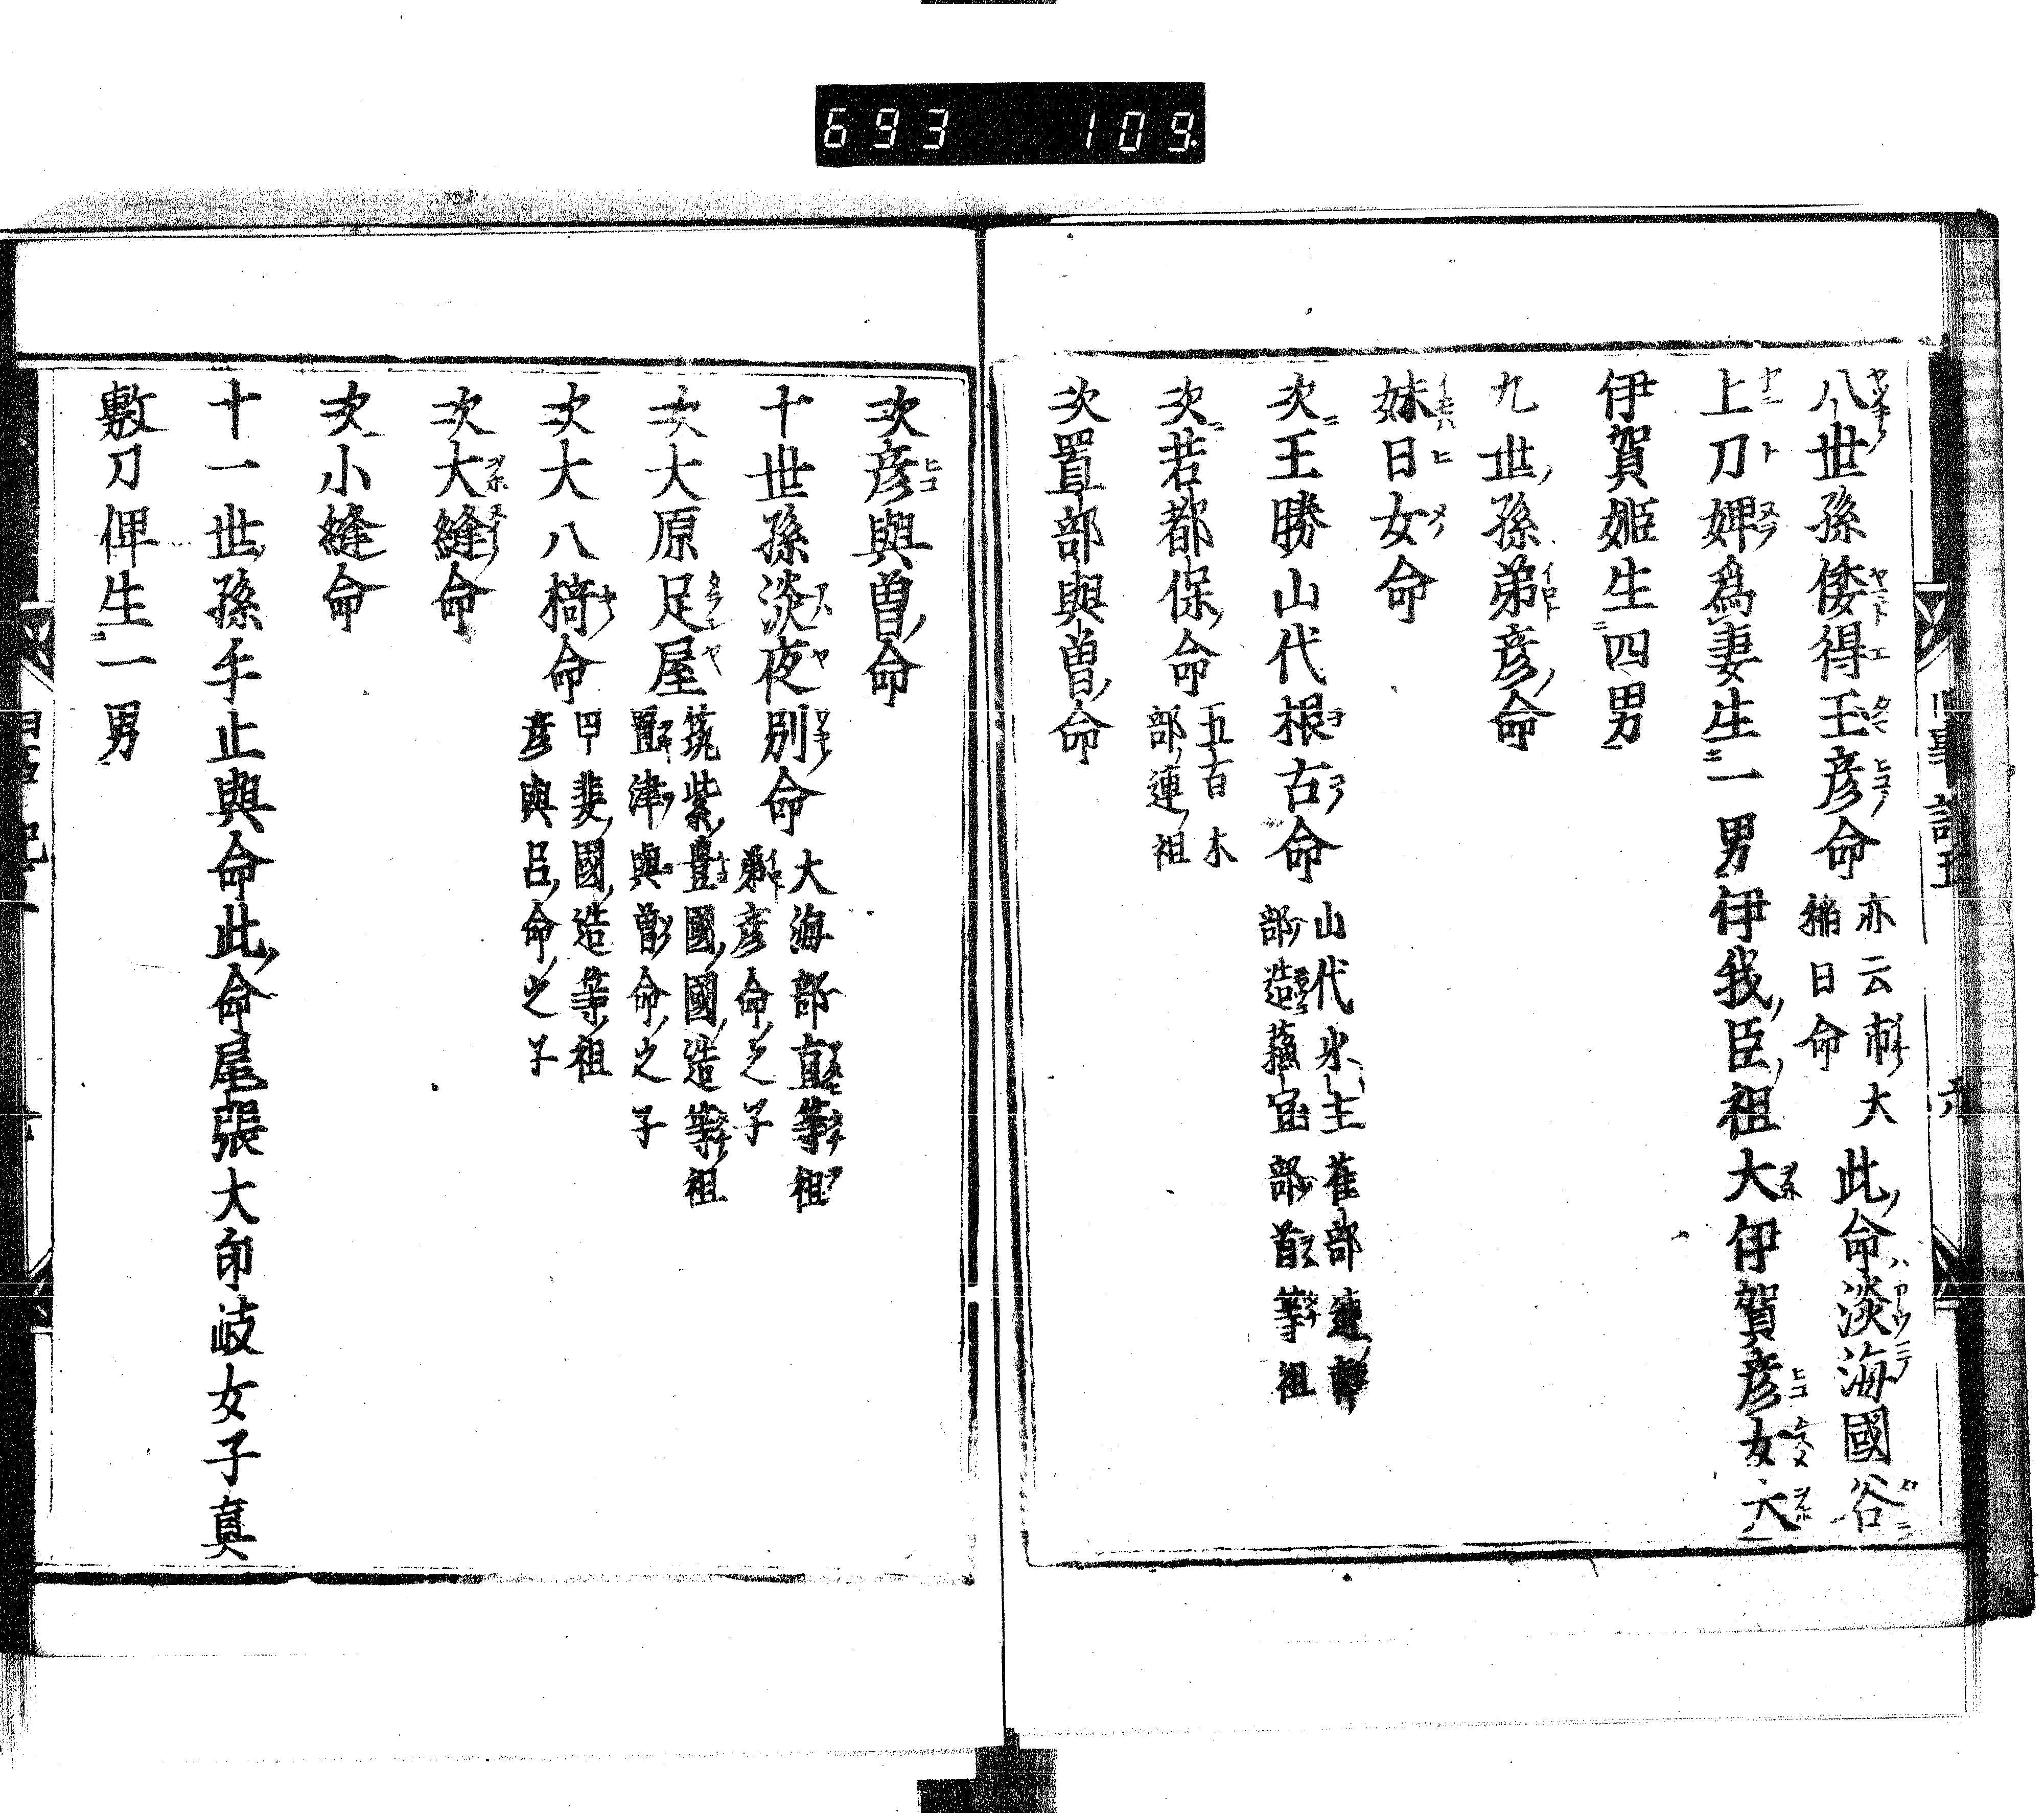 693 109
八世孫倭得玉彦命亦云市大稲日命此命淡海國谷
上刀婢爲妻生一男伊我臣祖大伊賀彦女大
伊賀姫生四男
九世孫弟彦命
妹日女命
次玉勝山代根古命山代水主雀部連軽部造蘇宜部首等祖
次若都保命五百木部連祖
次置部與曽命
次彦與曽命
十世孫淡夜別命大海部直等祖弟彦命之子
次大原足屋筑紫豊國國造等祖置津與曽命之子
次大八椅命甲斐國造等祖彦與呂命之子
次大縫命
次小縫命
十一世孫乎止與命此命尾張大印岐女子真
敷刀俾生一男